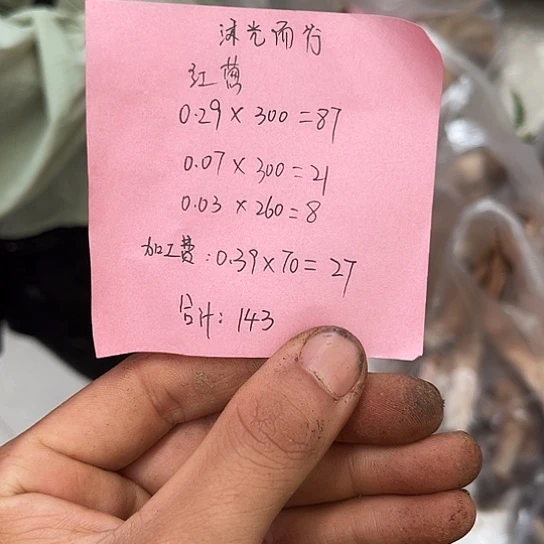 沐光而行
红茵
0.29×300=87
0.07×300=21
0.03×260=8
加工费:0.39×70=27
合计:143